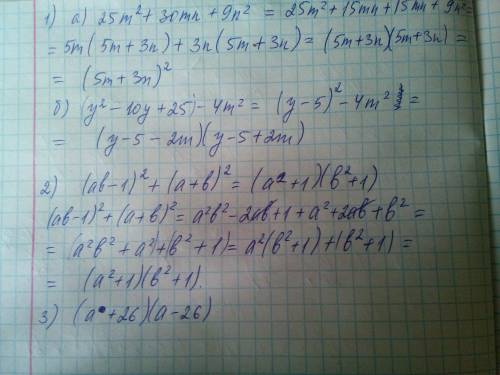 1) а) 25m² + 30mn + 9n² = 25m² + 15mn + 15mn + 9n² =
= 5m(5m + 3n) + 3n(5m + 3n) = (5m+3n)(5m+3n) =
= (5m+3n)²
б) (y² − 10y + 25) − 4m² = (y−5)² − 4m² =
= (y−5−2m)(y−5+2m)
2) (ab−1)² + (a+b)² = (a²+1)(b²+1)
(ab−1)² + (a+b)² = a²b² − 2ab + 1 + a² + 2ab + b² =
= (a²b² + a²) + (b² + 1) = a²(b²+1) + (b²+1) =
= (a²+1)(b²+1).
3) (a + 26)(a − 26)